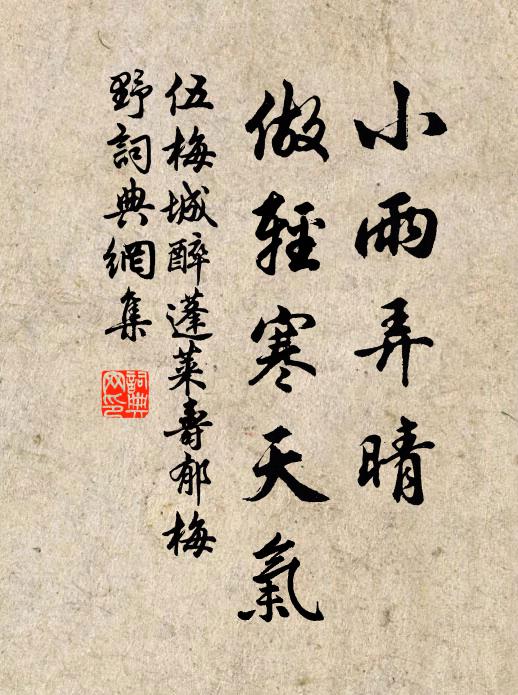 小雨弄晴
做輕寒天氣
伍梅城醉蓬萊壽郁梅
野詞典網集
詞典
网印